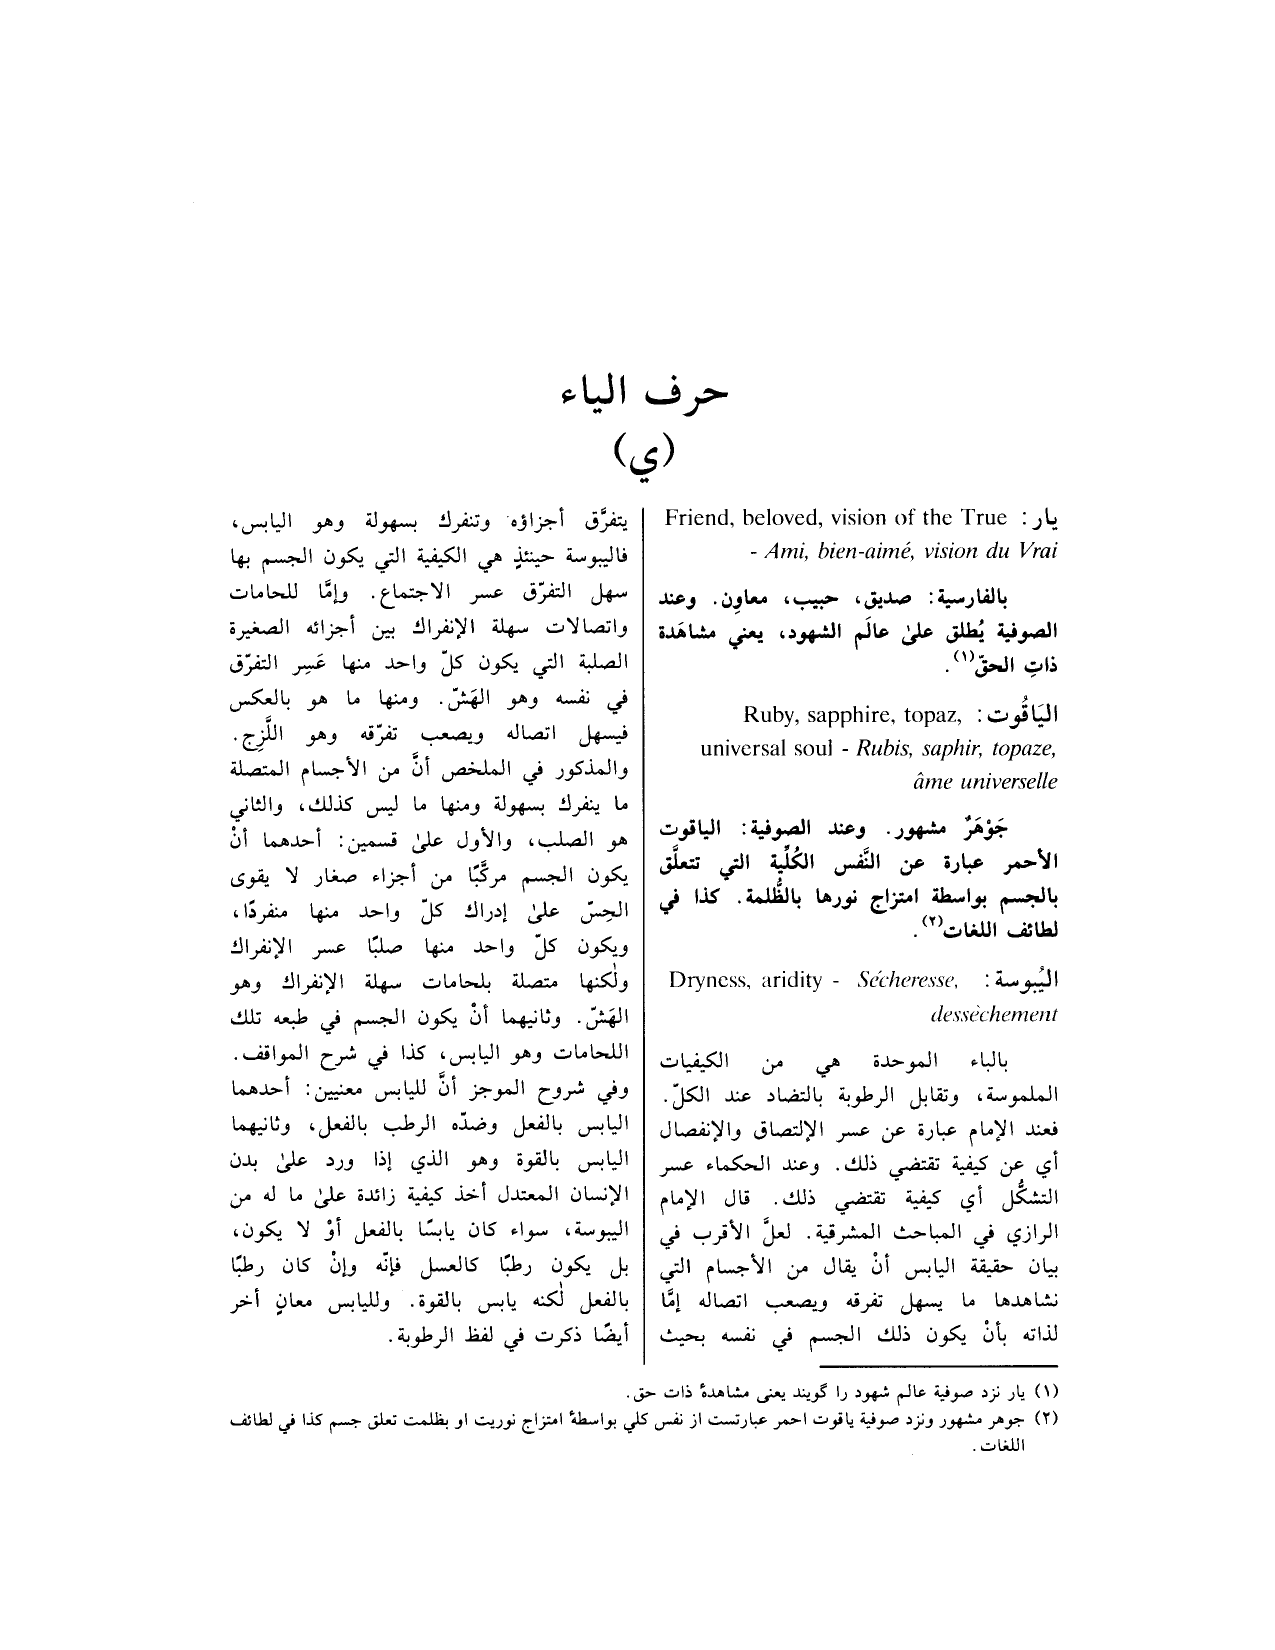 حرف الياء
(ي)
يار: Friend, beloved, vision of the True
- Ami, bien-aimé, vision du Vrai
بالفارسية: صديق، حبيب، معاوِن. وعند
الصوفية يُطلق علىٰ عالَم الشهود، يعني مشاهَدة
ذاتِ الحقّ(١).
اليَاقُوت: Ruby, sapphire, topaz,
universal soul - Rubis, saphir, topaze,
âme universelle
جَوْهَرٌ مشهور. وعند الصوفية: الياقوت
الأحمر عبارة عن النَّفس الكُلِّية التي تتعلَّق
بالجسم بواسطة امتزاج نورها بالظُّلمة. كذا في
لطائف اللغات(٢).
اليُبوسة: Dryness, aridity - Sécheresse,
dessèchement
بالباء الموحدة هي من الكيفيات
الملموسة، وتقابل الرطوبة بالتضاد عند الكلّ.
فعند الإمام عبارة عن عسر الإلتصاق والإنفصال
أي عن كيفية تقتضي ذلك. وعند الحكماء عسر
التشكُّل أي كيفية تقتضي ذلك. قال الإمام
الرازي في المباحث المشرقية. لعلَّ الأقرب في
بيان حقيقة اليابس أنْ يقال من الأجسام التي
نشاهدها ما يسهل تفرقه ويصعب اتصاله إمَّا
لذاته بأنْ يكون ذلك الجسم في نفسه بحيث
يتفرَّق أجزاؤه وتنفرك بسهولة وهو اليابس،
فاليبوسة حينئذٍ هي الكيفية التي يكون الجسم بها
سهل التفرّق عسر الاجتماع. وإمَّا للحامات
واتصالات سهلة الإنفراك بين أجزائه الصغيرة
الصلبة التي يكون كلّ واحد منها عَسِر التفرّق
في نفسه وهو الهَشّ. ومنها ما هو بالعكس
فيسهل اتصاله ويصعب تفرّقه وهو اللَّزِج.
والمذكور في الملخص أنَّ من الأجسام المتصلة
ما ينفرك بسهولة ومنها ما ليس كذلك، والثاني
هو الصلب، والأول علىٰ قسمين: أحدهما أنْ
يكون الجسم مركَّبًا من أجزاء صغار لا يقوى
الحِسّ علىٰ إدراك كلّ واحد منها منفردًا،
ويكون كلّ واحد منها صلبًا عسر الإنفراك
ولٰكنها متصلة بلحامات سهلة الإنفراك وهو
الهَشّ. وثانيهما أنْ يكون الجسم في طبعه تلك
اللحامات وهو اليابس، كذا في شرح المواقف.
وفي شروح الموجز أنَّ لليابس معنيين: أحدهما
اليابس بالفعل وضدّه الرطب بالفعل، وثانيهما
اليابس بالقوة وهو الذي إذا ورد علىٰ بدن
الإنسان المعتدل أخذ كيفية زائدة علىٰ ما له من
اليبوسة، سواء كان يابسًا بالفعل أوْ لا يكون،
بل يكون رطبًا كالعسل فإنّه وإنْ كان رطبًا
بالفعل لٰكنه يابس بالقوة. ولليابس معانٍ أخر
أيضًا ذكرت في لفظ الرطوبة.
(١) يار نزد صوفية عالم شهود را گويند يعنى مشاهدۀ ذات حق.
(٢) جوهر مشهور ونزد صوفية ياقوت احمر عبارتست از نفس كلي بواسطۀ امتزاج نوريت او بظلمت تعلق جسم كذا في لطائف
اللغات.